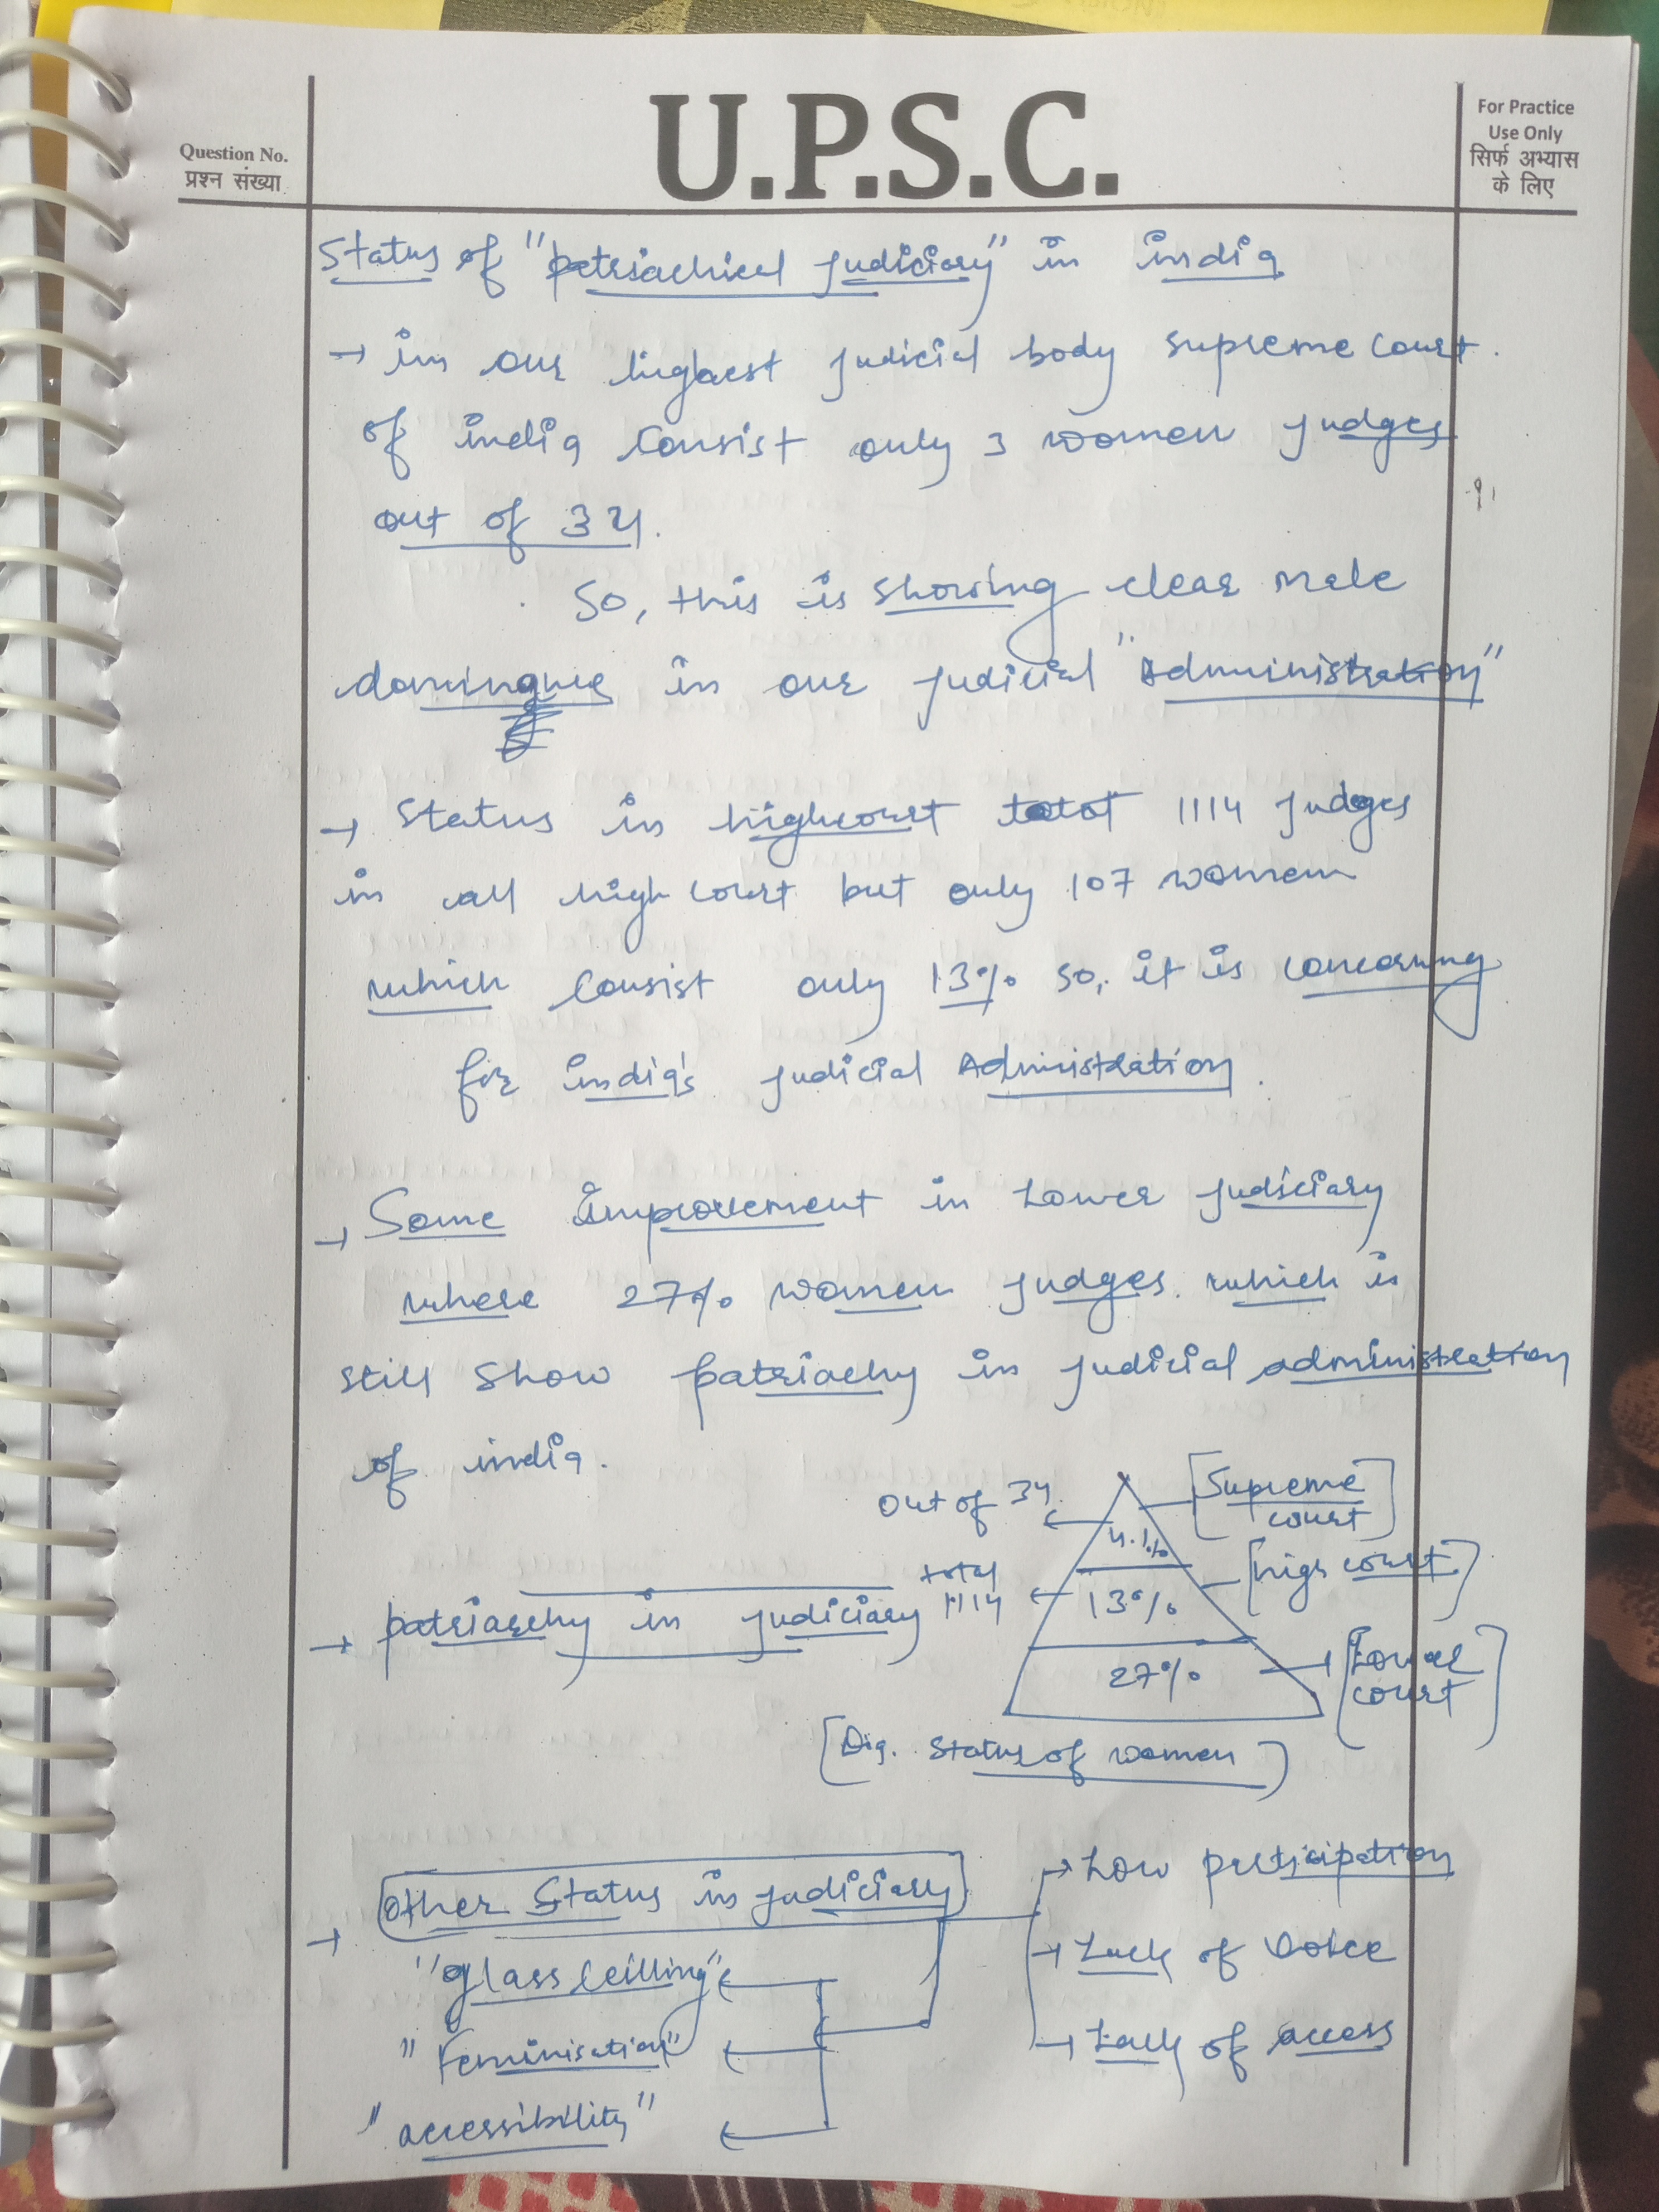 U.P.S.C.
Question No.
प्रश्न संख्या
For Practice
Use Only
सिर्फ अभ्यास
के लिए
Status of "patriachical judiciary" in india
→ in our highest judicial body supreme court.
of india consist only 3 women judges
out of 34.
So, this is showing clear male
dominance in our judicial "Administration"
→ Status in highcourt total 1114 judges
in all high court but only 107 women
which consist only 13% so, it is concerning
for india's judicial Administration.
→ Some improvement in Lower judiciary
where 27% women judges which is
still show patriachy in judicial administration
of india.
out of 34 ← 4.1% [Supreme
court]
total
1114 ← 13% [high court]
→ patriarchy in judiciary
27% → [Lower
court]
[Dig. Status of women]
→ Other Status in judiciary
→ Low participation
→ Lack of voice
→ Lack of access
"glass ceilling" ←
"Feminisation" ←
"accessibility" ←